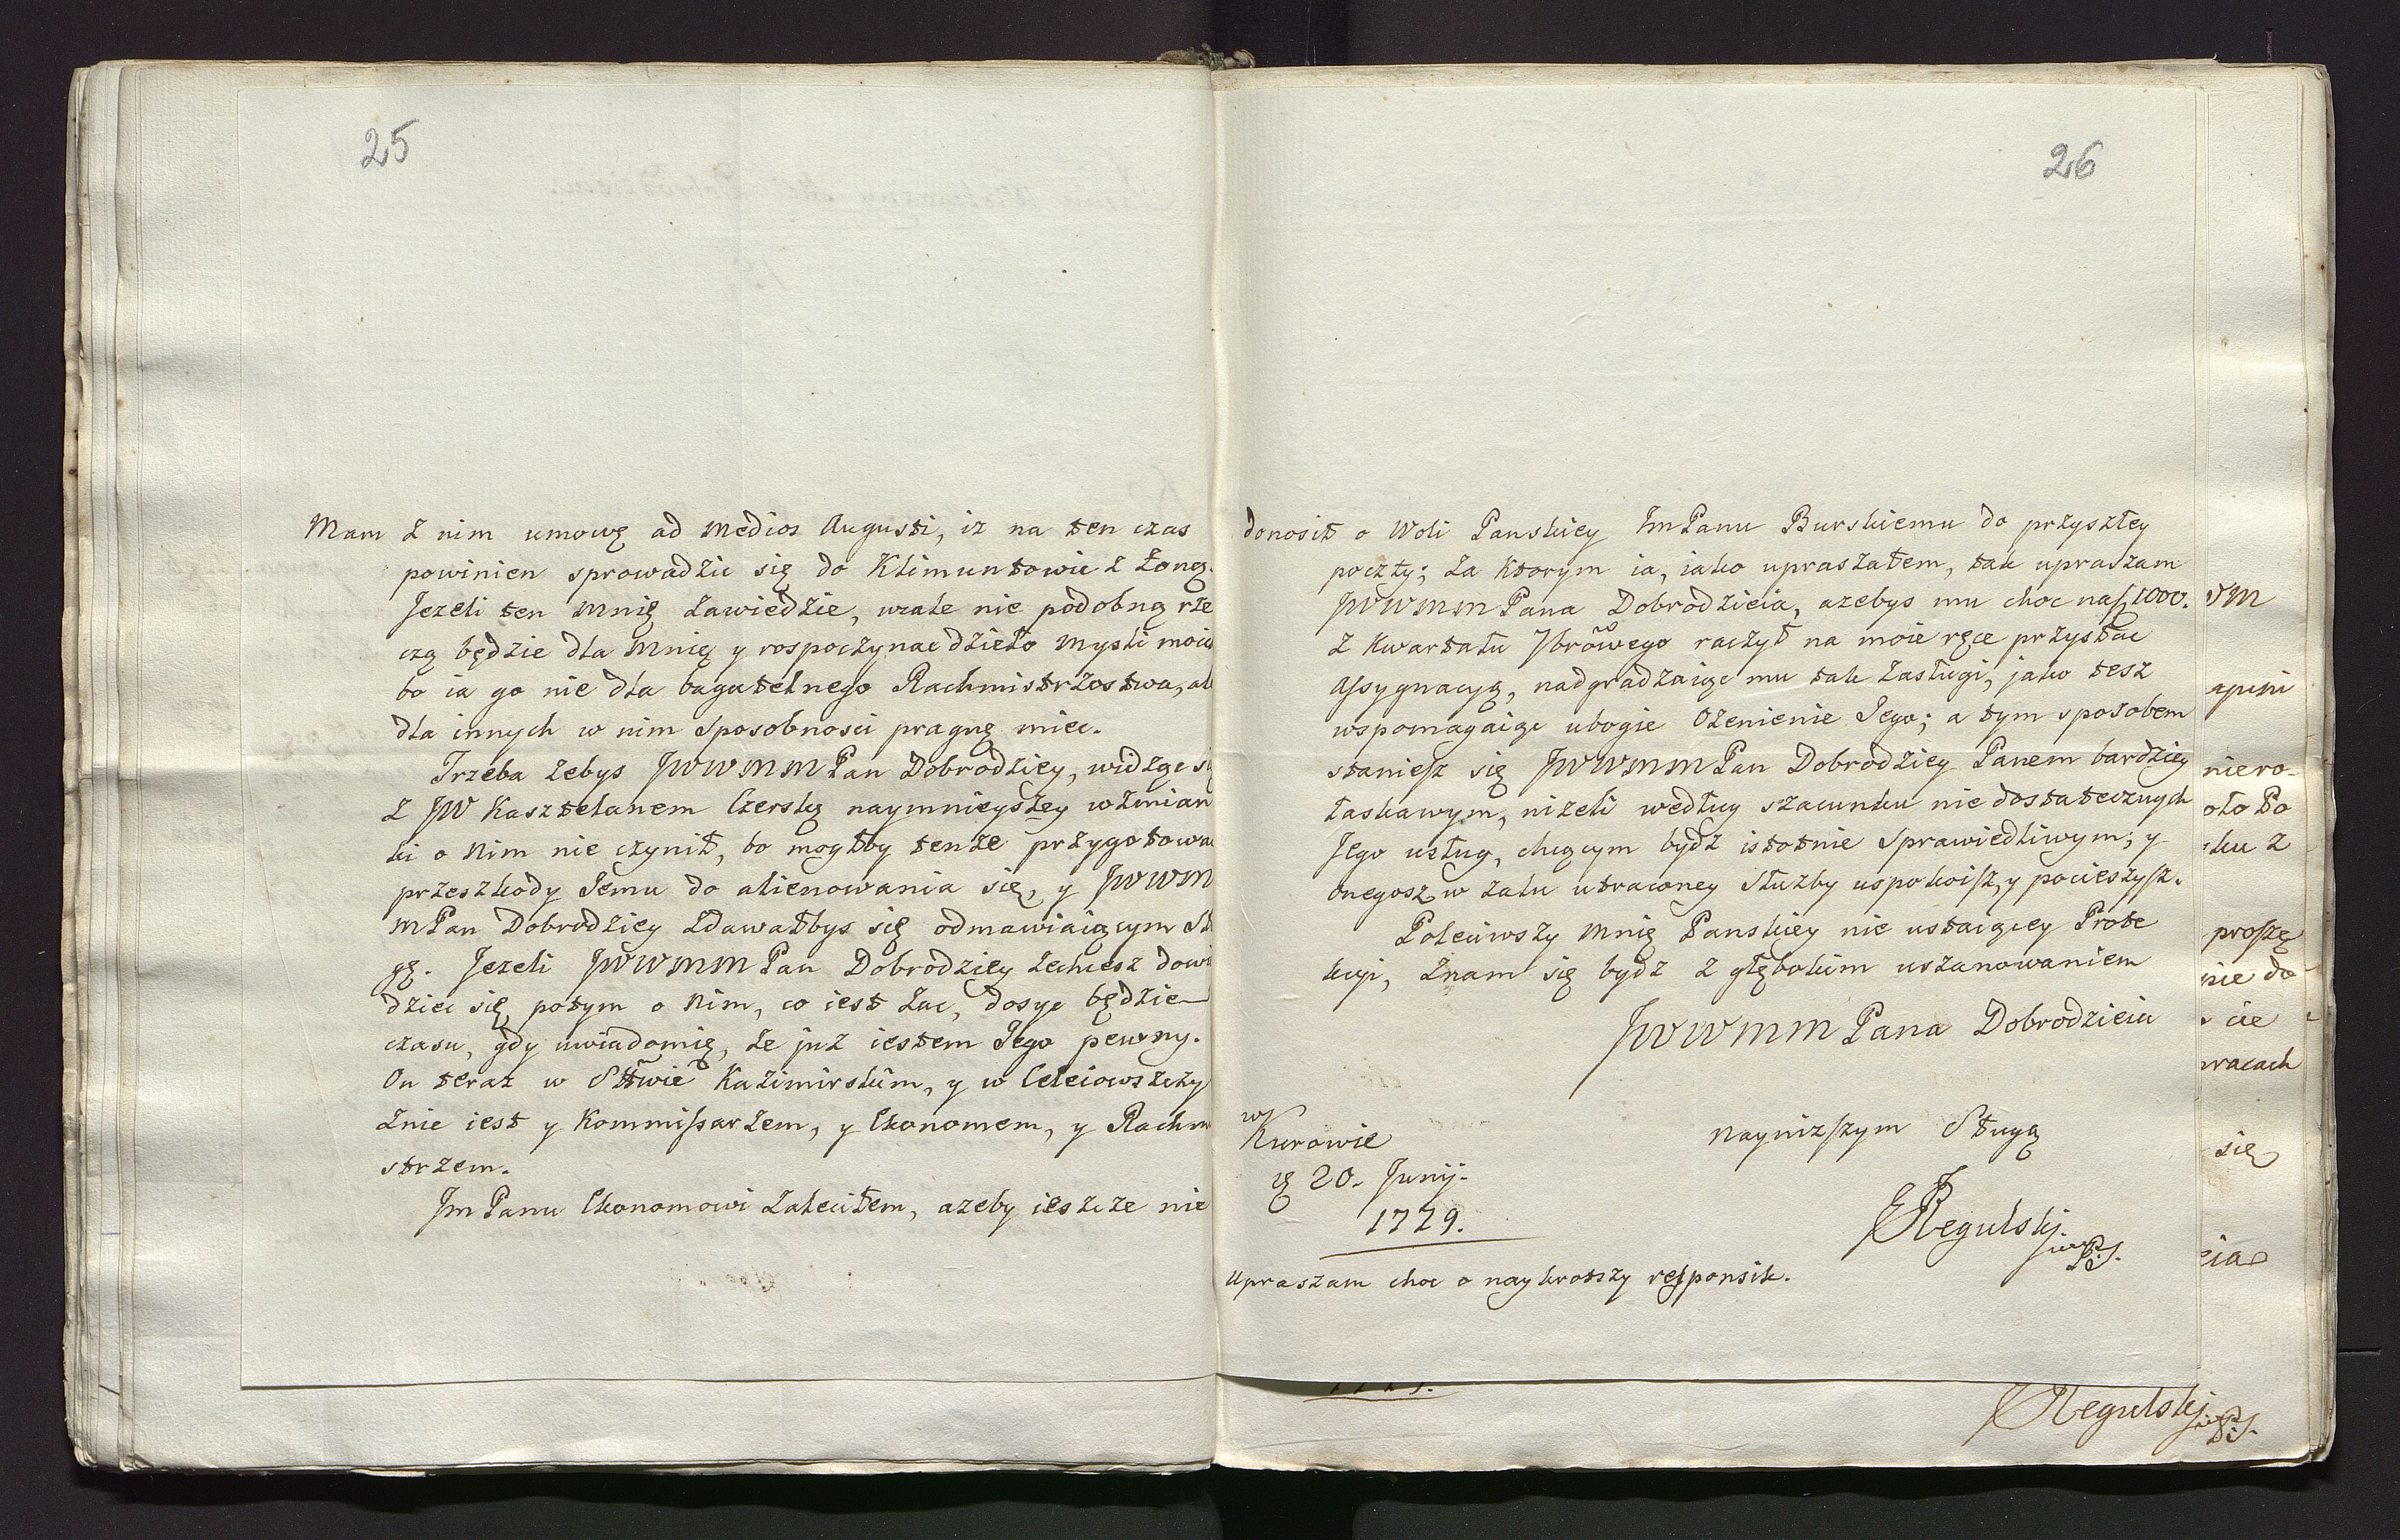 25
Mam z nim umowę ad medios Augusti, iz na ten czas
powinien sprowadzic się do Klimuntowic z Żoną.
Jezeli ten mnię zawiedzie, wcale nie podobną rze
czą będzie dla mnię y rospoczynac dzieło mysli moich
bo ia go nie dla bagatelnego Rachmistrzostwa, al
dla innych w nim sposobnosci pragnę miec.
Trzeba zebys JWWMM Pan Dobrodziey, widząc się
z JW Kasztelanem Czerskę naymnieyszey wzmian
ki o nim nie czynił, bo mogłby tenze przygotowac
przeszkody Jemu do alienowania się, y JWWM
MPan Dobrodziey zdawałbys się odmawiaiącym Słu
gę. Jezeli JWWMM Pan Dobrodziey zechcesz dowi
dziec się, potym o nim, co iest zac, dosyc będzie
czasu, gdy uwiadomię, ze juz iestem Jego pewny.
On teraz w Sttwie Kazimirskim, y w Celeiowszczy
znie iest y Kommissarzem, y Ekonomem, y Rachm
strzem.
Jm Panu Ekonomowi zaleciłem, azeby ieszcze nie
26
donosił o Woli Panskiey Jm Panu Burskiemu do przyszłey
poczty; za ktorym ia, iako upraszałem, tak upraszam
JWWMM Pana Dobrodzieia, azebys mu choc na f. 1000.
z Kwartału 7browego raczył na moie ręce przysłac
Assygnacyą, nadgradzaiąc mu tak zasługi, jako tesz
wspomagaiąc ubogie Ozenienie Jego; a tym sposobem
staniesz się JWWMM Pan Dobrodziey Panem bardziey
łaskawym, nizeli według szacunku nie dostatecznych
Jego usług, chcącym bydz istotnie sprawiedliwym; y
onegosz w zalu utraconey Słuzby uspokoisz, y pocieszysz.
Poleciwszy mnię Panskiey nie ustaiącey Prote
kcyi, znam się bydz z głębokim uszanowaniem
JWWMM Pana Dobrodzieia
w Kurowie
20. Junij.
1729.
nayniższym Sługą
Regulskj
upraszam choc o naykrotszy responsik.
niero-
oło Po
sku z
proszę
nie do
cie
pracach
się
Regulskj